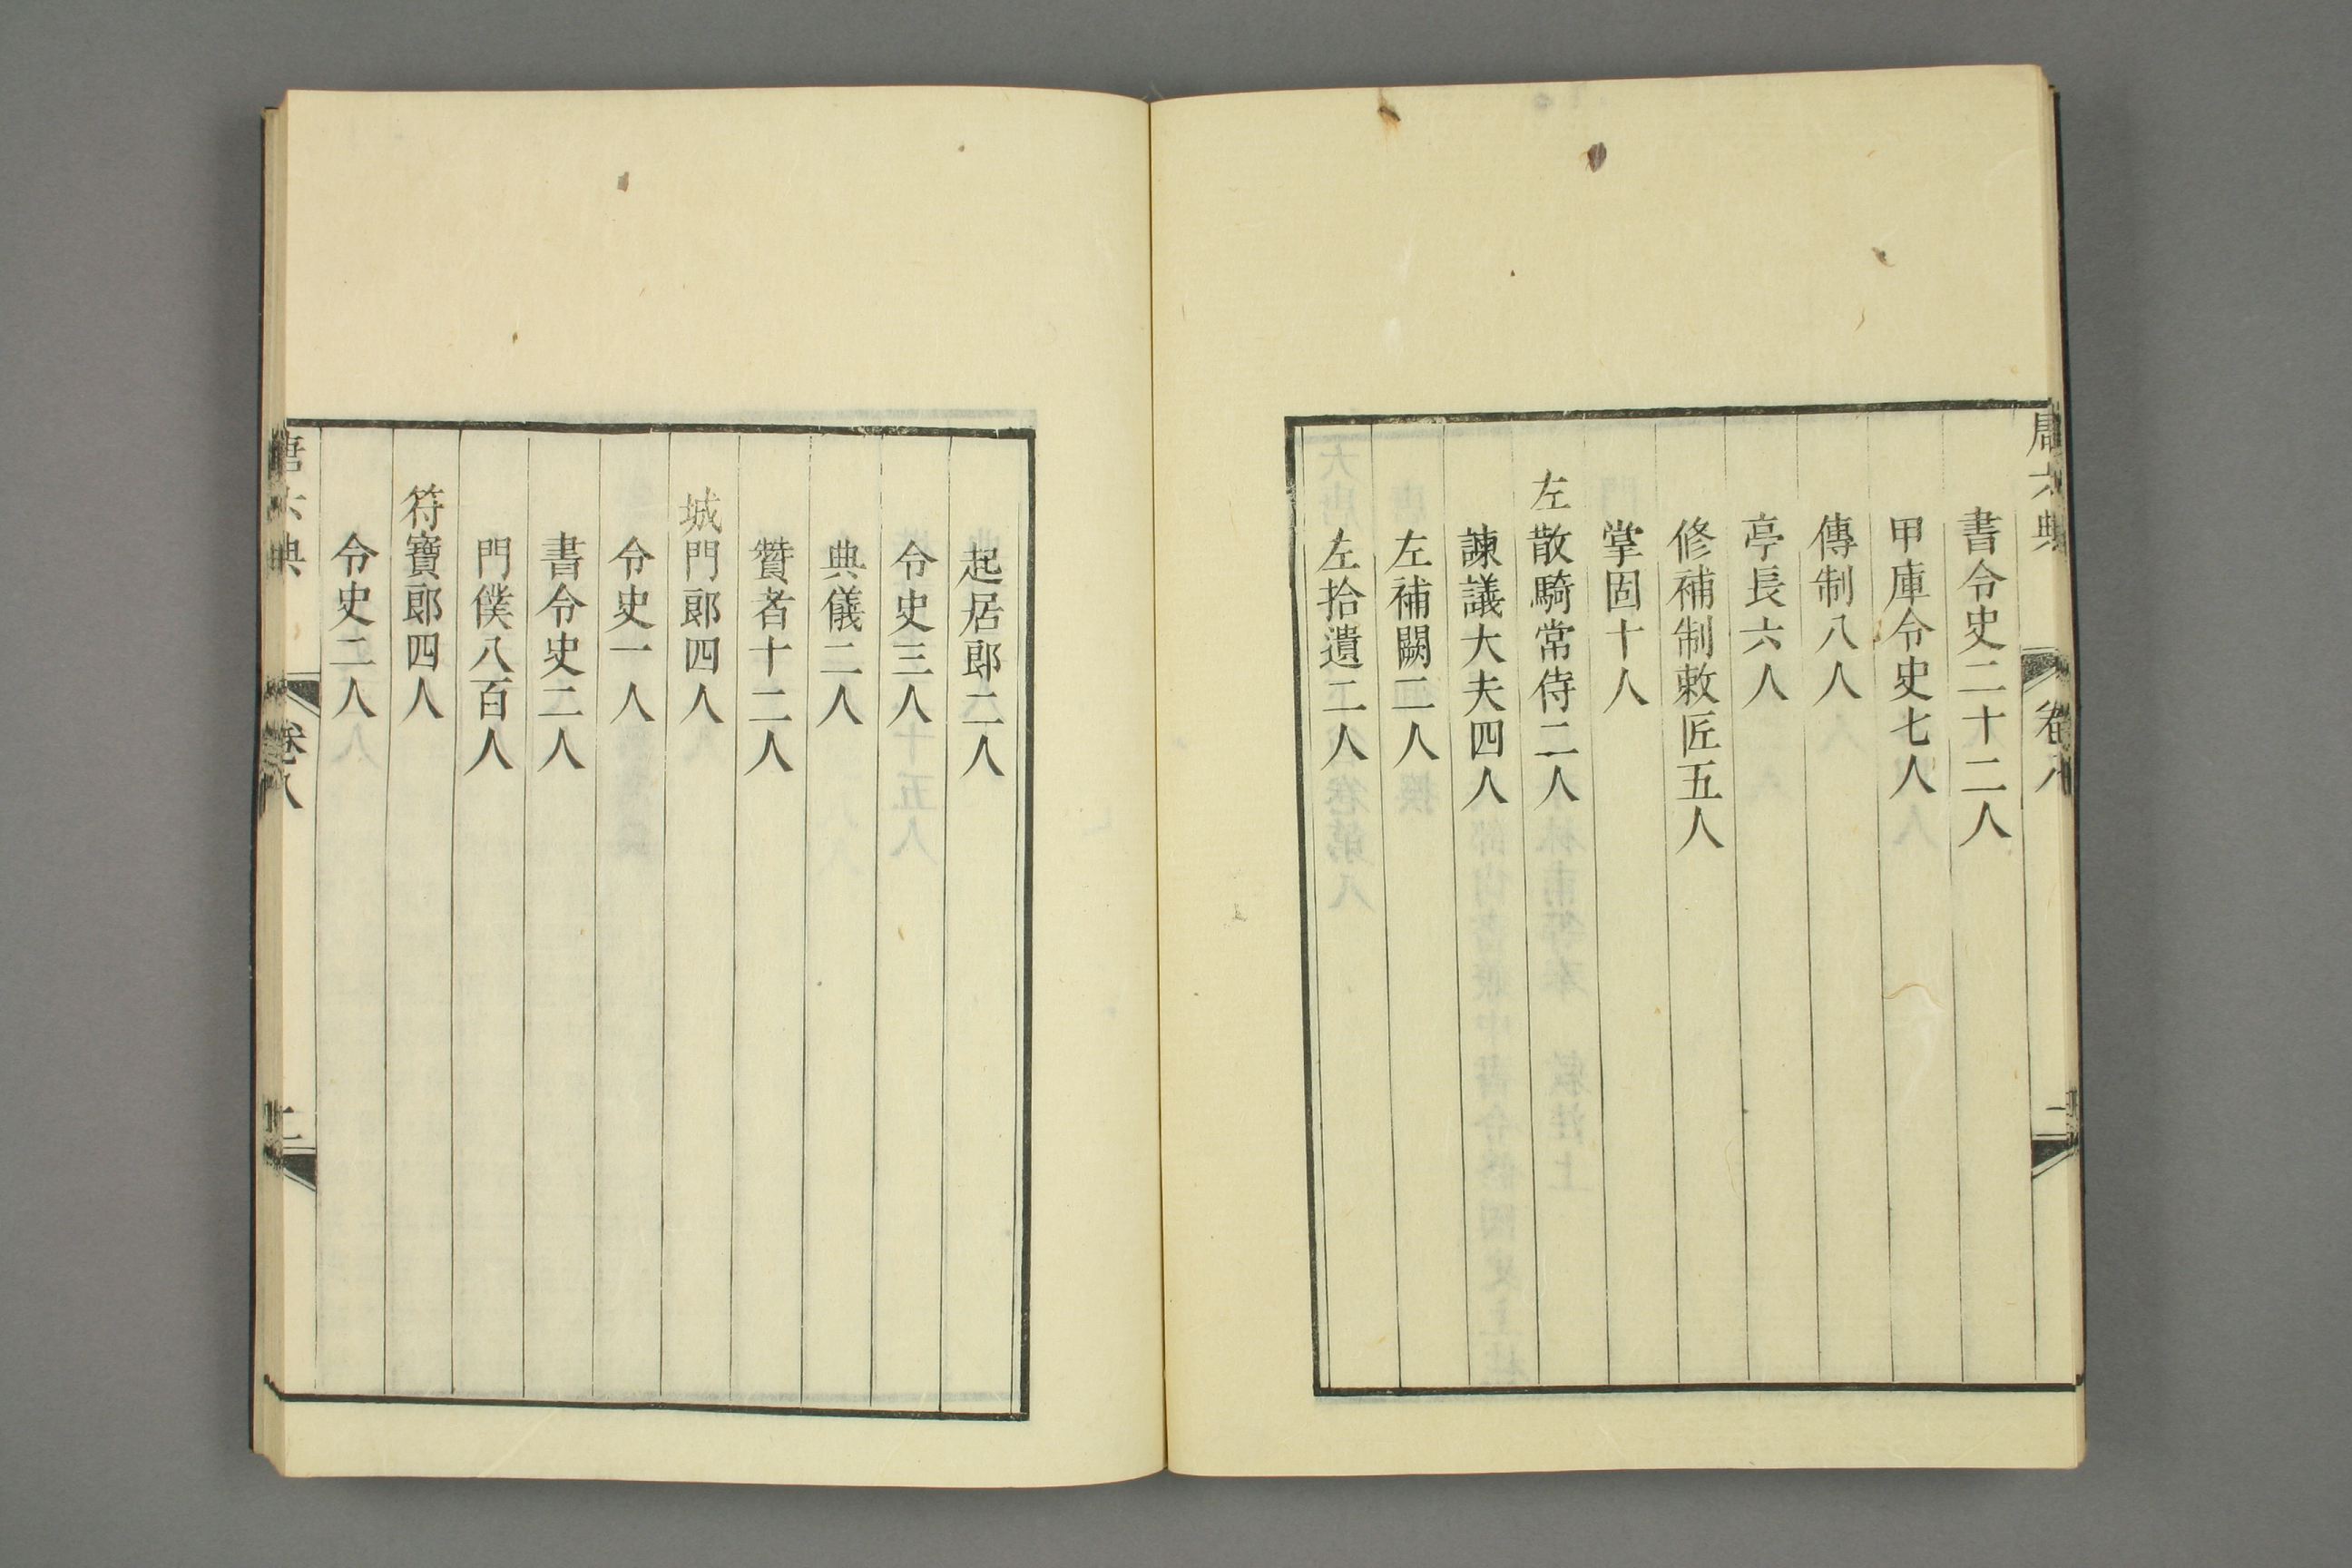 唐六典 卷八 二
書令史二十二人
甲庫令史七人
傳制八人
亭長六人
修補制敕匠五人
掌固十人
左散騎常侍二人
諫議大夫四人
左補闕二人
左拾遺二人
起居郎二人
令史三人
典儀二人
贊者十二人
城門郎四人
令史一人
書令史二人
門僕八百人
符寶郎四人
令史二人
唐六典 卷八 二